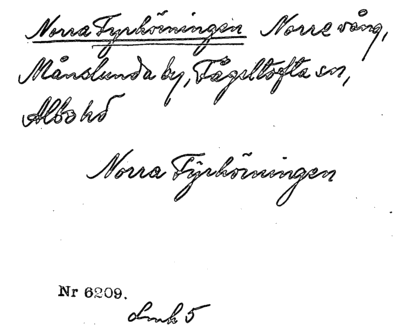 Norra Fyrhörningen Norre vång,
Månslunda by, Fågeltofta sn,
Albo hd
Norra Fyrhörningen
Nr 6209.
Lmk 5